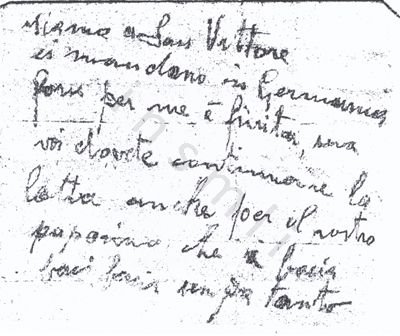 siamo a San Vittore
ci mandano in Germania
forse per me è finita, ma
voi dovete continuare la
lotta anche per il vostro
paparino che vi bacia
baci baci
tanto
insmli